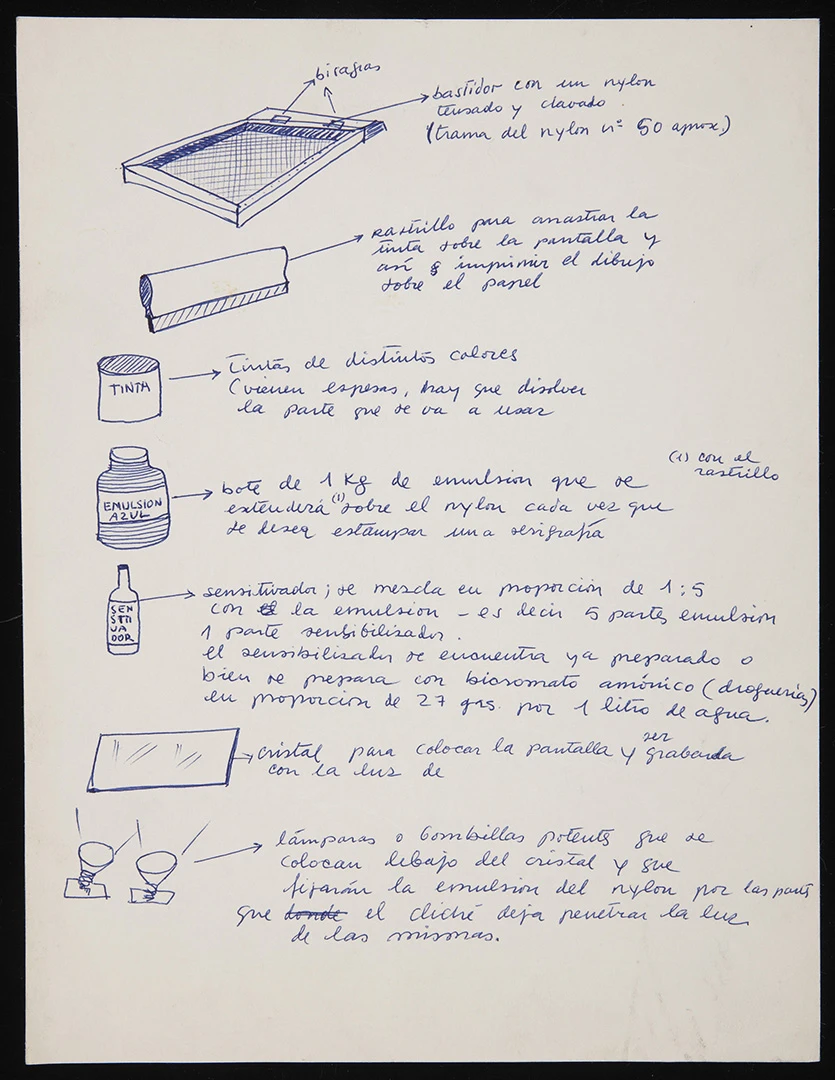 bisagras
bastidor con un nylon
tensado y clavado.
(trama del nylon nº 50 aprox.)
rastrillo para arrastrar la
tinta sobre la pantalla y
así imprimir el dibujo
sobre el papel
TINTA
Tintas de distintos colores
(vienen espesas, hay que disolver
la parte que se va a usar
(1) con el
rastrillo
EMULSION
AZUL
bote de 1 Kg de emulsion que se
extenderá (1) sobre el nylon cada vez que
se desea estampar una serigrafía
SEN
SITI
VA
DOR
sensitivador; se mezcla en proporción de 1:5
con la emulsion - es decir 5 partes emulsion
1 parte sensibilizador.
el sensibilizador se encuentra ya preparado o
bien se prepara con bicromato amónico (droguerías)
en proporcion de 27 grs. por 1 litro de agua.
cristal para colocar la pantalla y ser grabada
con la luz de
lámparas o bombillas potentes que se
colocan debajo del cristal y que
fijarán la emulsion del nylon por las partes
que donde el cliché deja penetrar la luz
de las mismas.